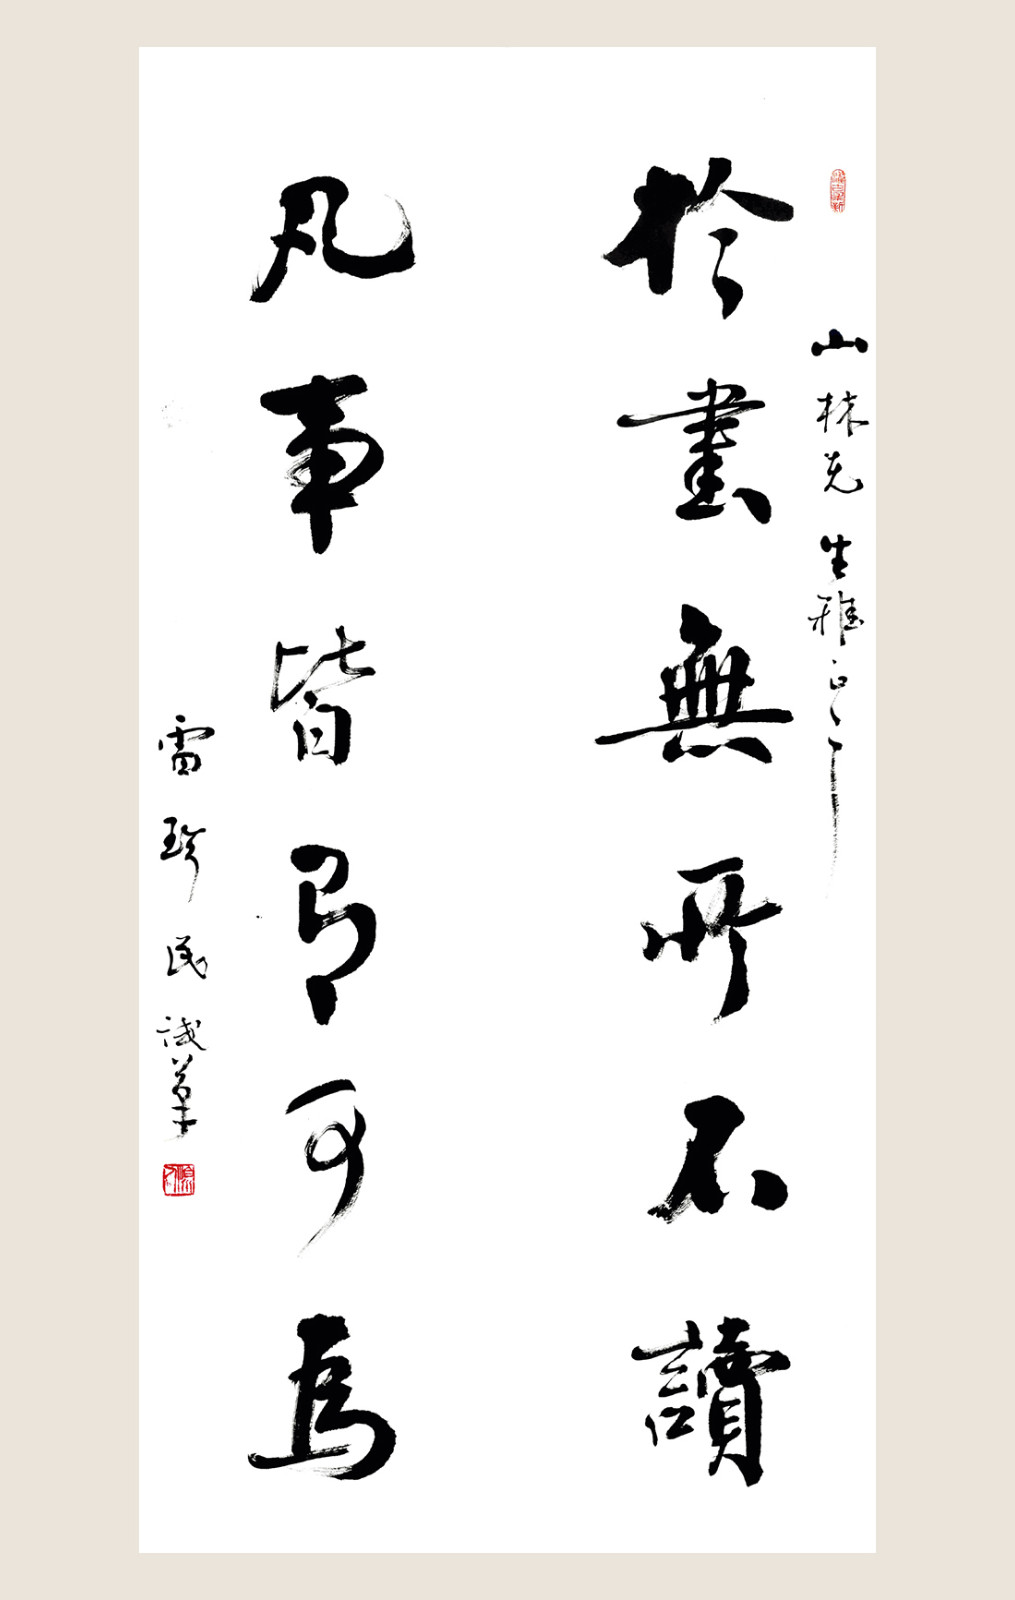 山林先生雅正
於書無所不讀
凡事皆有可為
雷珍民試筆